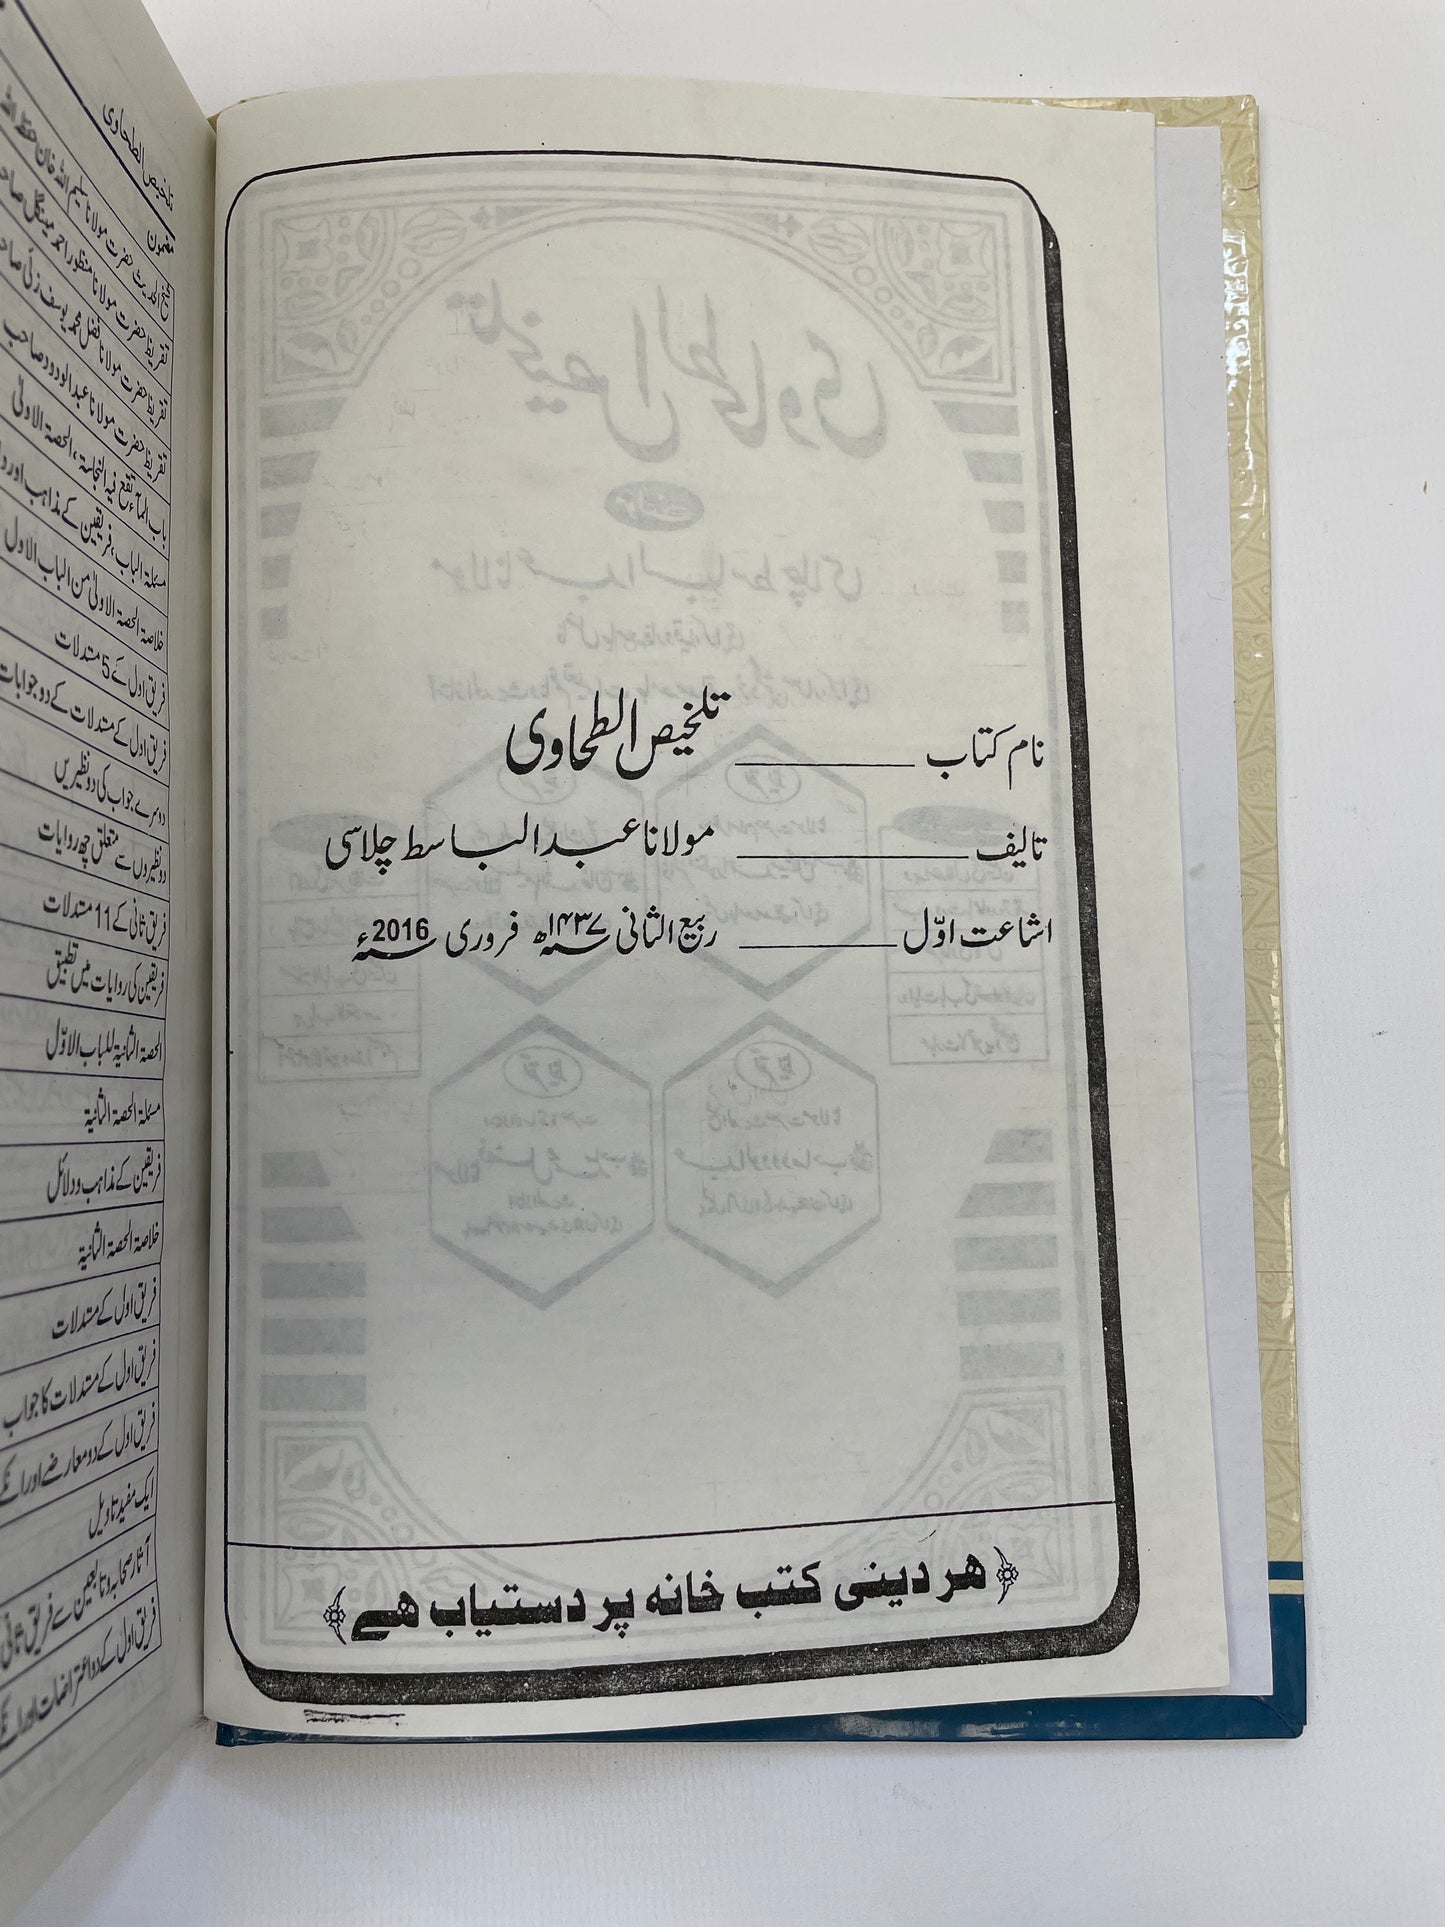 نام کتاب ـــــــــــــ تلخیص الطحاوی
تالیف ـــــــــــــ مولانا عبدالباسط چلاسی
اشاعت اوّل ـــــــــــــ ربیع الثانی ۱۴۳۷ھ فروری 2016ء
ھر دینی کتب خانہ پر دستیاب ھے
تلخیص الطحاوی
مضمون
شیخ الحدیث حضرت مولانا سلیم اللہ خان حفظہ اللہ
تقریظ حضرت مولانا منظور احمد مینگل
تقریظ حضرت مولانا فضل محمد یوسف زئی
تقریظ حضرت مولانا عبدالودود صاحب
باب الماء تقع فیہ النجاسۃ، الحصۃ الاولیٰ
مسئلۃ الباب، فریقین کے مذاہب اور
خلاصۃ الحصۃ الاولیٰ من الباب الاول
فریق اول کے 5 مستدلات
فریق اول کے مستدلات کے دو جوابات
دوسرے جواب کی دو نظیریں
دو نظیروں سے متعلق چھ روایات
فریق ثانی کے 11 مستدلات
فریقین کی روایات میں تطبیق
الحصۃ الثانیۃ للباب الاوّل
مسئلۃ الحصۃ الثانیۃ
فریقین کے مذاہب و دلائل
خلاصۃ الحصۃ الثانیۃ
فریق اول کے مستدلات
فریق اول کے مستدلات کا جواب
فریق اول کے دو معارضے اور انکے
ایک مفید تاویل
آثار صحابہ و تابعین سے فریق ثانی
فریق اول کے دو اعتراضات اور انکے